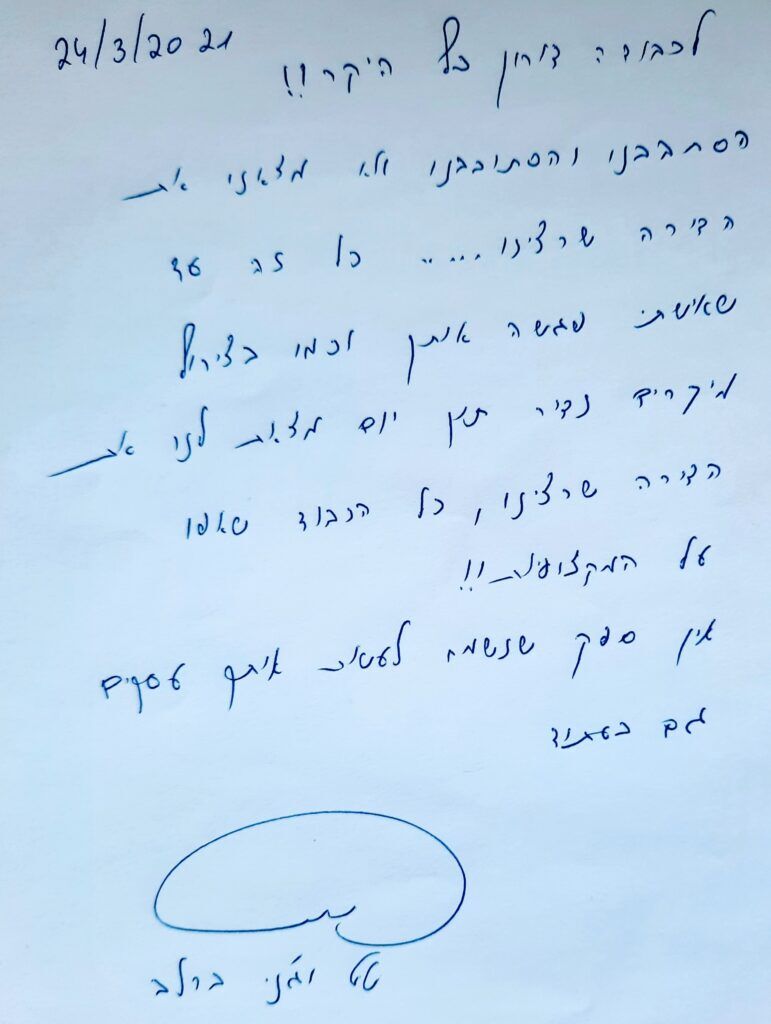 24/3/2021
לכבודה דורון כץ היקר!!
הסתבבנו והסתובבנו ולא מצאנו את
הדירה שרצינו..... כל זה עד
שאישתי פגשה אותך וכמו בצירוף
מיקרים נדיר תוך יום מצאת לנו את
הדירה שרצינו, כל הכבוד שאפו
על המקצועיות!!
אין ספק שנשמח לעשות איתך עסקים
גם בעתיד
וג'ני ברלב